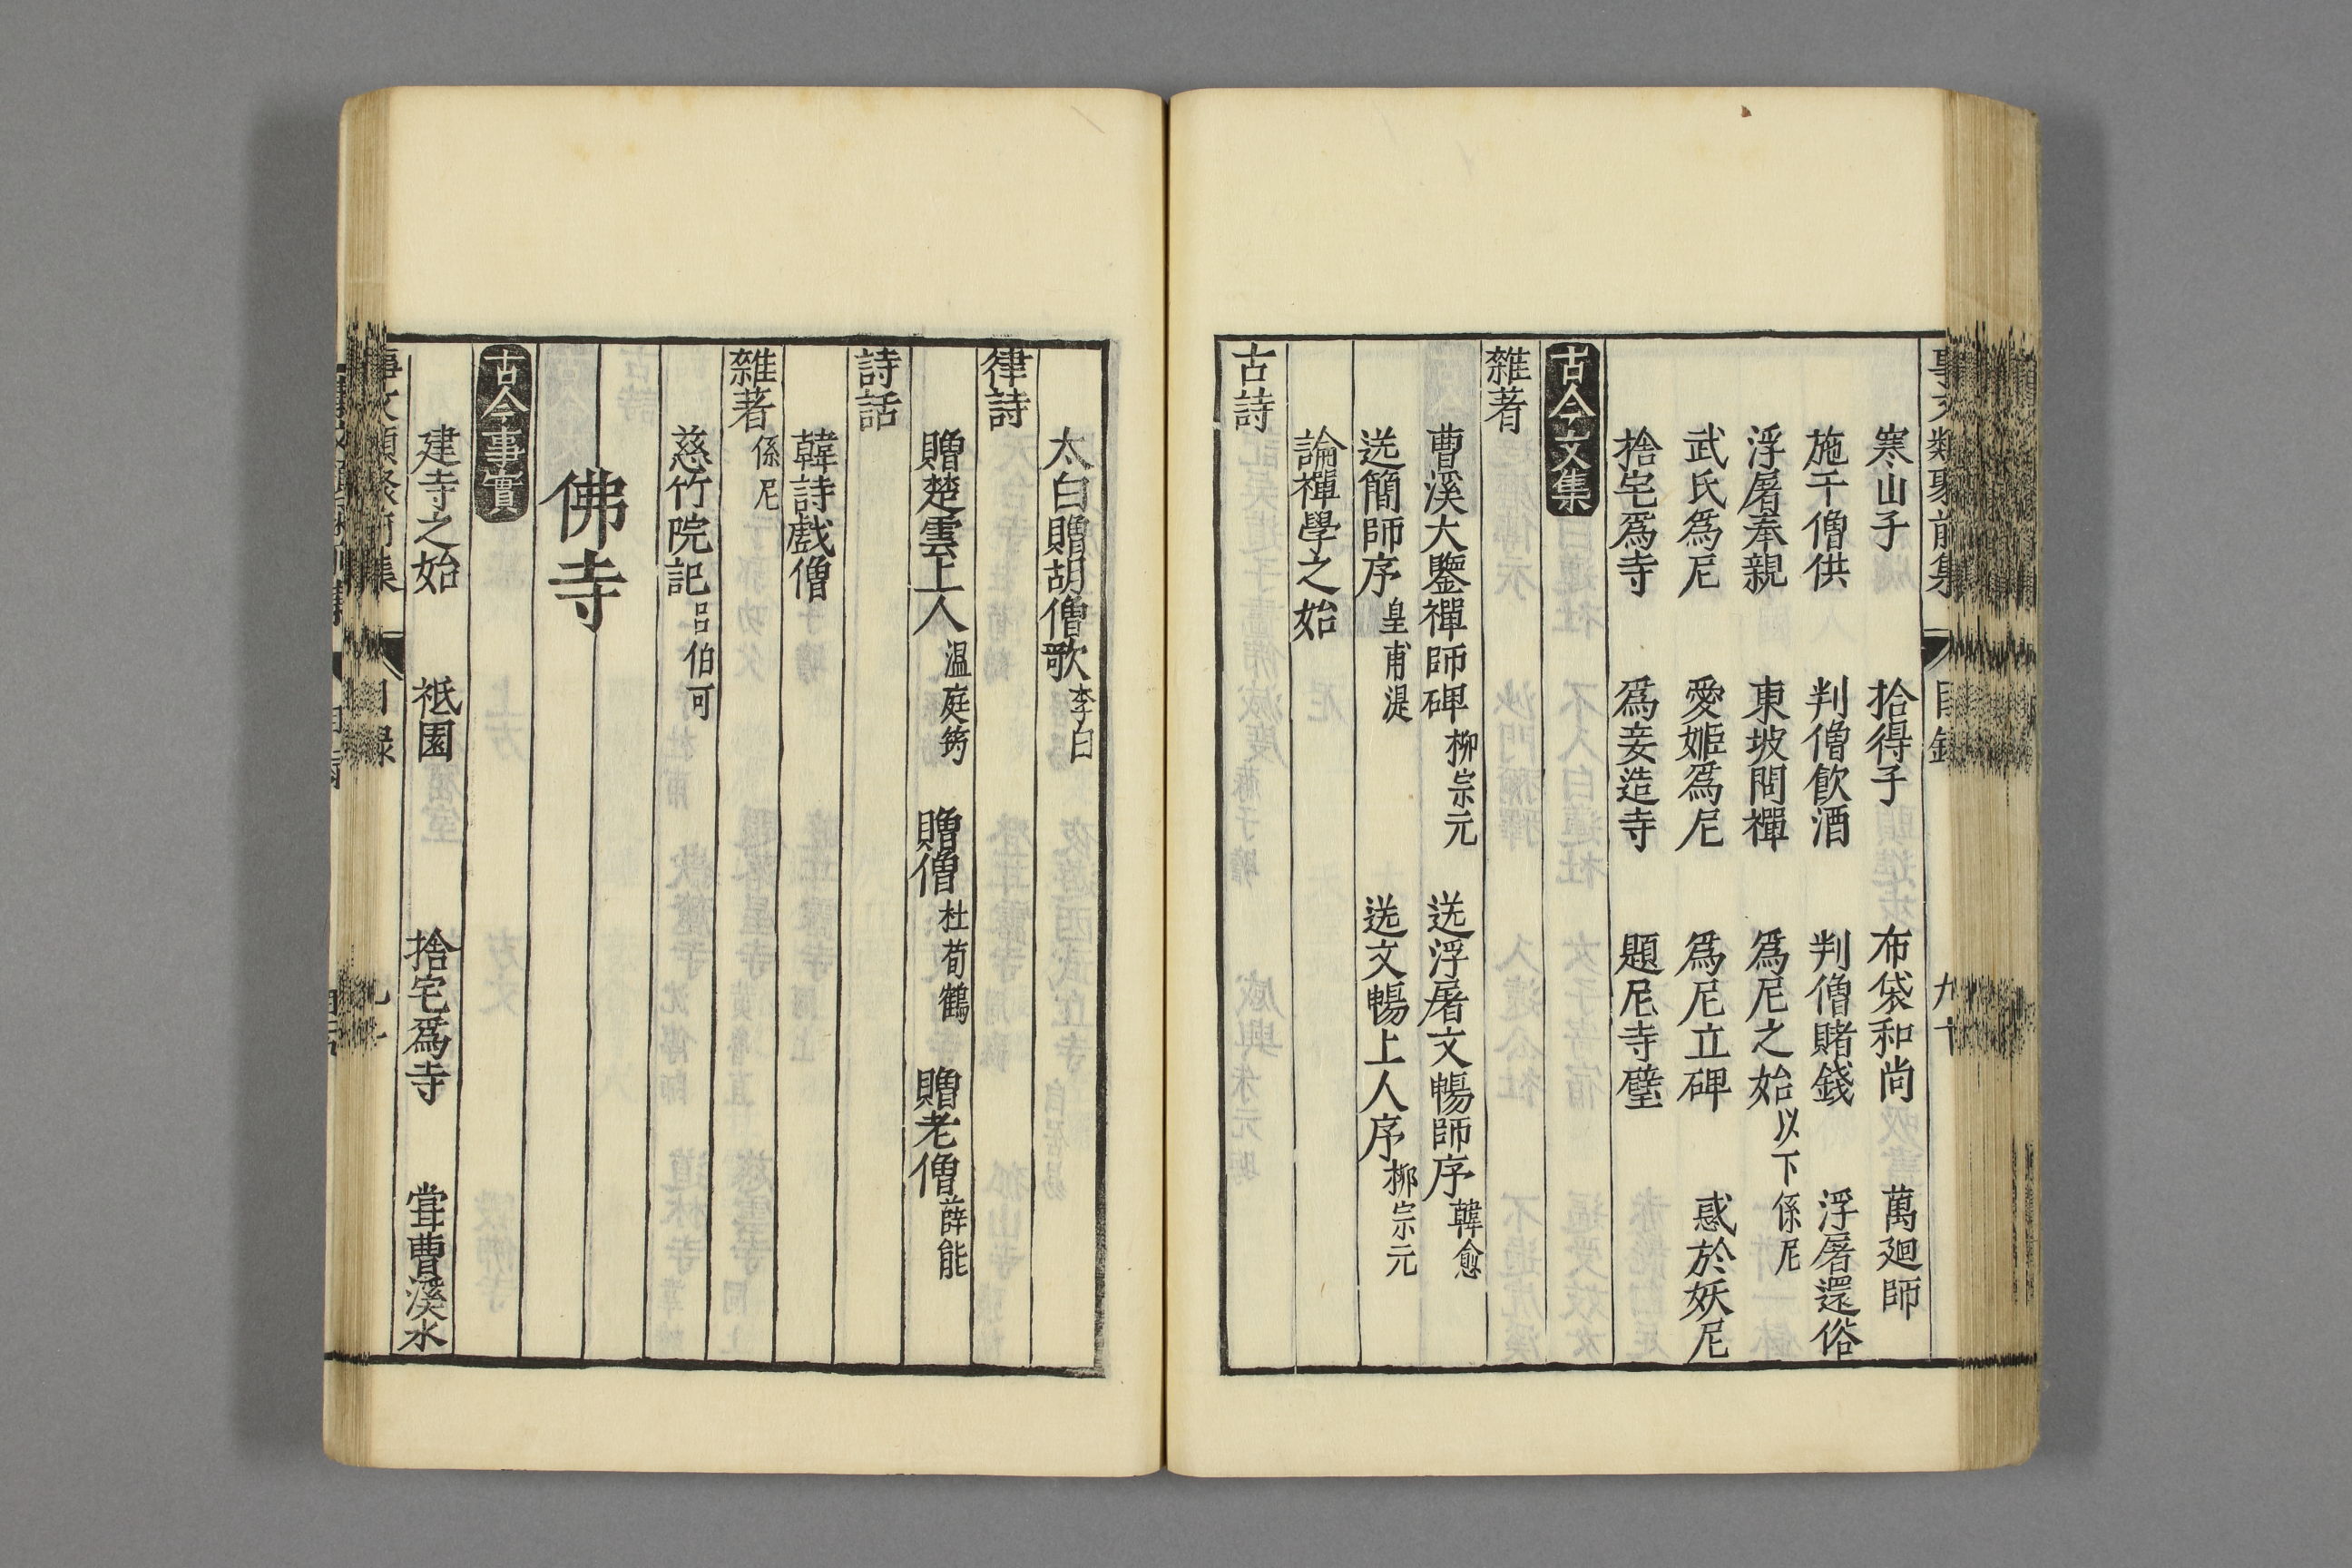 寒山子　拾得子　布袋和尚　萬廻師
施千僧供　判僧飮酒　判僧賭錢　浮屠還俗
浮屠奉親　東坡問禪　爲尼之始以下係尼
武氏爲尼　愛姬爲尼　爲尼立碑　惑於妖尼
捨宅爲寺　爲妾造寺　題尼寺壁
古今文集
雜著
曹溪大鑒禪師碑柳宗元　送浮屠文暢師序韓愈
送簡師序皇甫湜　送文暢上人序柳宗元
論禪學之始
古詩
太白贈胡僧歌李白
律詩
贈楚雲上人温庭筠　贈僧杜荀鶴　贈老僧薛能
詩話
韓詩戲僧
雜著係尼
慈竹院記吕伯可
佛寺
古今事實
建寺之始　祇園　捨宅爲寺　甞曹溪水